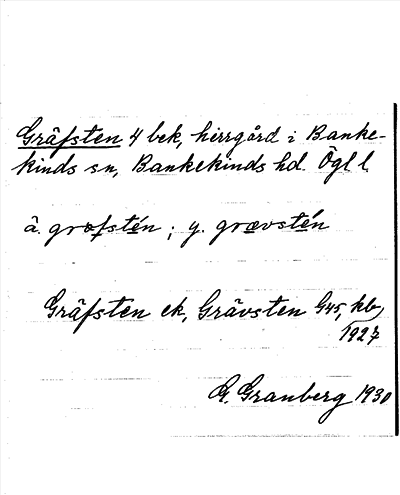 Gräfsten 4 bek, herrgård i Banke-
kinds sn, Bankekinds hd. Ögl l.
ä. grofstén; y. grævstén
Gräfsten ek, Grävsten G45, kb,
1927
G. Granberg 1930